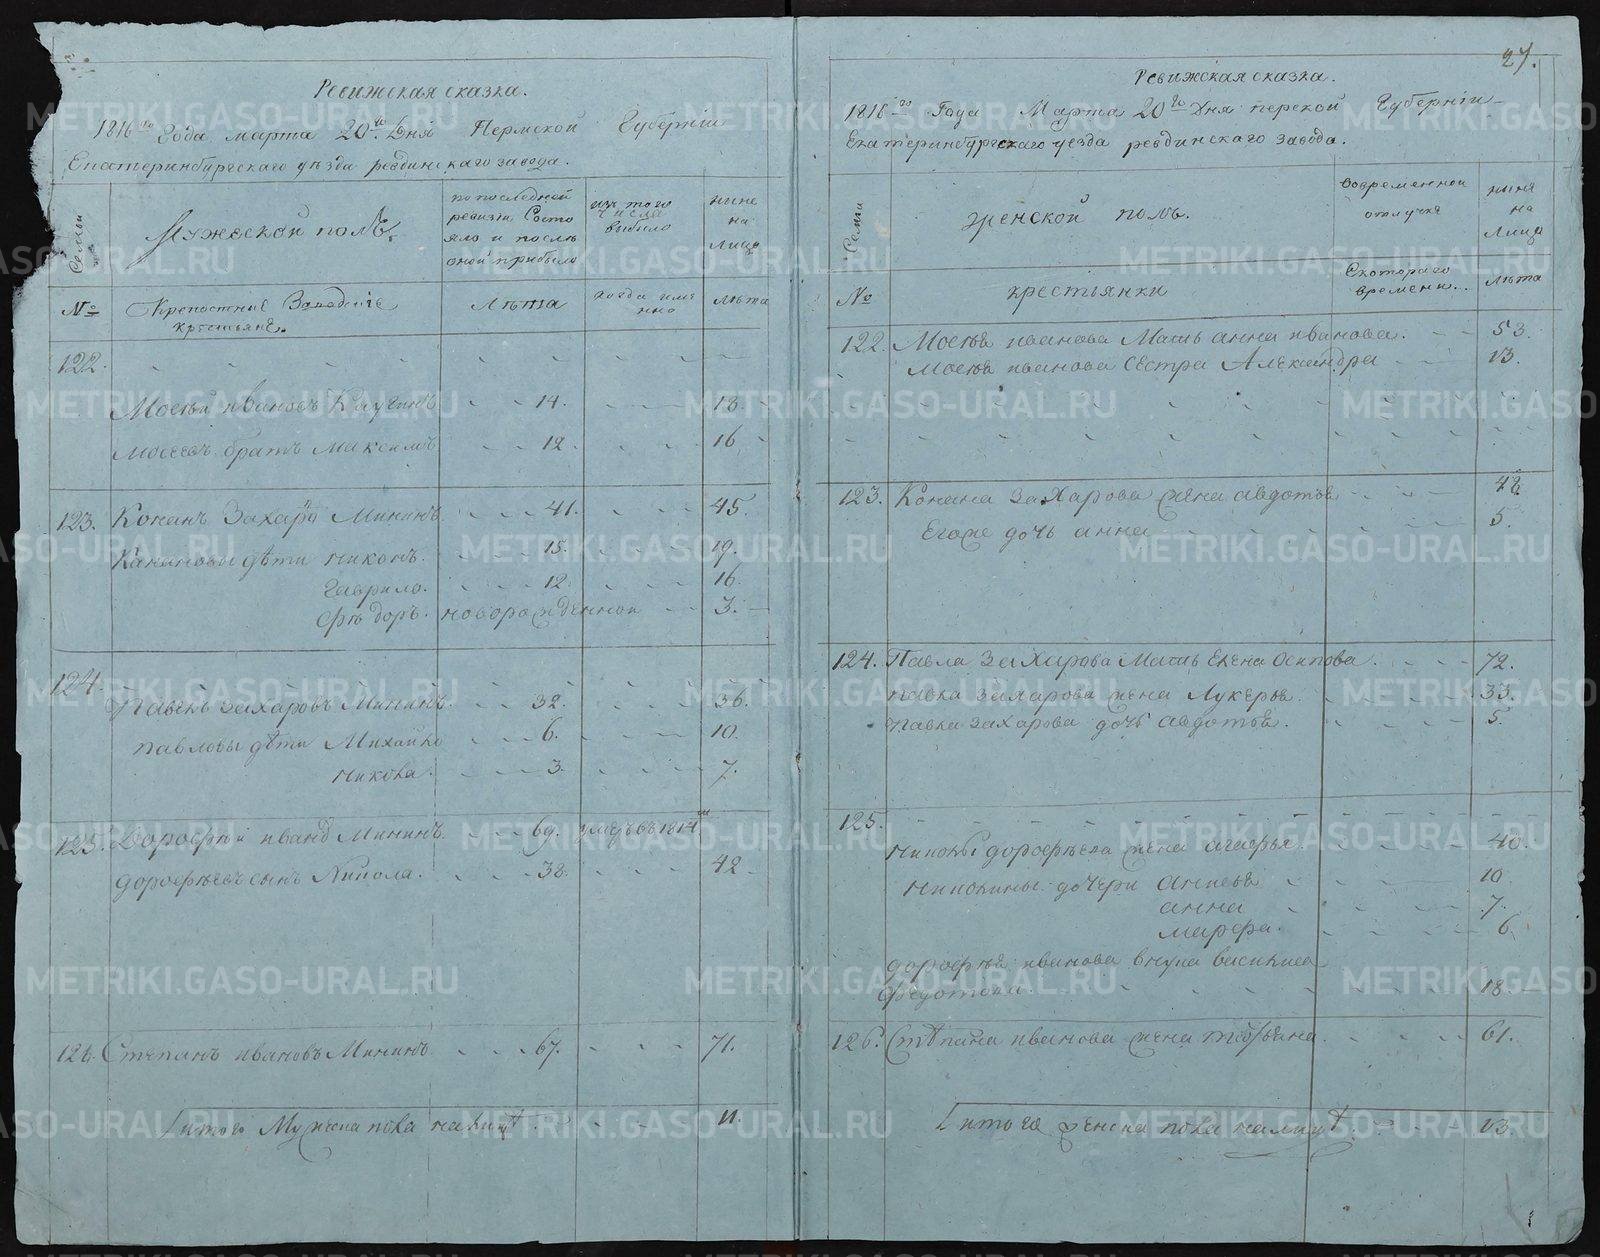 27.
Ревижская сказка.
1816го Года марта 20го Дня Пермской Губернiи
Екатеринбургскаго уѣзда ревдинскаго завода.
Семьи
Мужеской полъ.
по последней ревизiи Состо яло и послѣ оной прибыло
изъ того числа выбыло
ныне на лицо
№
Крепостные Заводскiе крестьяне.
Лѣта
когда имя нно
лѣта
122.
Мосѣй ивановъ 14. 18
Мосеевъ братъ Максимъ 12 16
123. Конанъ Захаръ Мининъ 41. 45.
Канановы дѣти Никонъ. 15. 19.
Гаврило. 12. 16.
Фѣдоръ. новорожденной 3.
124.
Павелъ Захаровъ Мининъ. 32. 36.
Павловы дѣти Михайло 6. 10.
Никола. 3. 7.
125. Дорофѣй иванъ Мининъ. 69. умеръ въ 1814м
дорофѣевъ сынъ Никола. 38. 42
126. Степанъ ивановъ Мининъ 67. 71.
итого Мужеска пола налицо 11.
Ревижская сказка.
1816го Года Марта 20го Дня перской Губернiи
Екатеринбургскаго уезда ревдинскаго завода.
Семьи
женской полъ.
вовременной отлучке
ныня на лицо
№
крестьянки
Скотораго времени.
лѣта
122. Мосѣя иванова Мать анна иванова. 53.
Мосѣя иванова Сестра Александра 13.
123. Конана Захарова жена авдотья 48
Егоже дочь анна 5.
124. Павла Захарова Мать Елена Осипова. 72.
павла захарова жена Лукерья. 33.
павла захарова дочь авдотья. 5.
125.
николы дорофѣева жена агафья. 40.
николины дочери Анисья 10
анна 7.
марфа. 6
дорофѣя иванова внука василиса
Федотова 18
126. Степана иванова жена татьяна 61.
итого женска пола налицо 13
METRIKI.GASO-URAL.RU